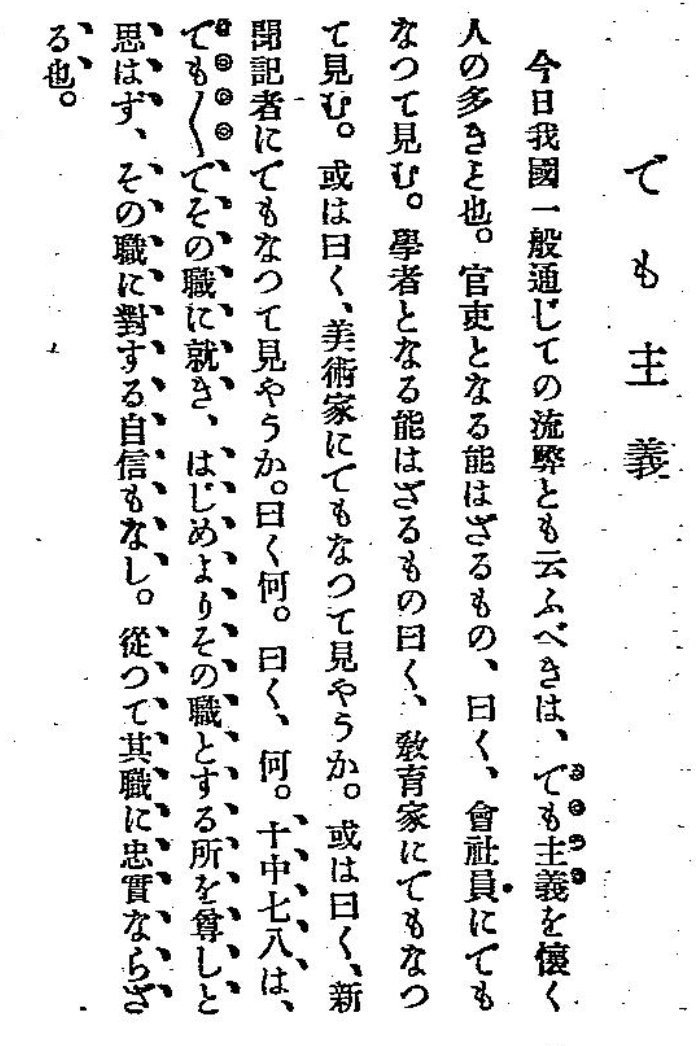 でも主義
今日我國一般通じての流弊とも云ふべきは、でも主義を懷く
人の多きこと也。官吏となる能はざるもの、曰く、會社員にても
なつて見む。學者となる能はざるもの曰く、敎育家にてもなつ
て見む。或は曰く、美術家にてもなつて見やうか。或は曰く、新
聞記者にてもなつて見やうか。曰く何。曰く、何。十中七八は、
でも〳〵でその職に就き、はじめよりその職とする所を尊しと
思はず、その職に對する自信もなし。從つて其職に忠實ならざ
る也。